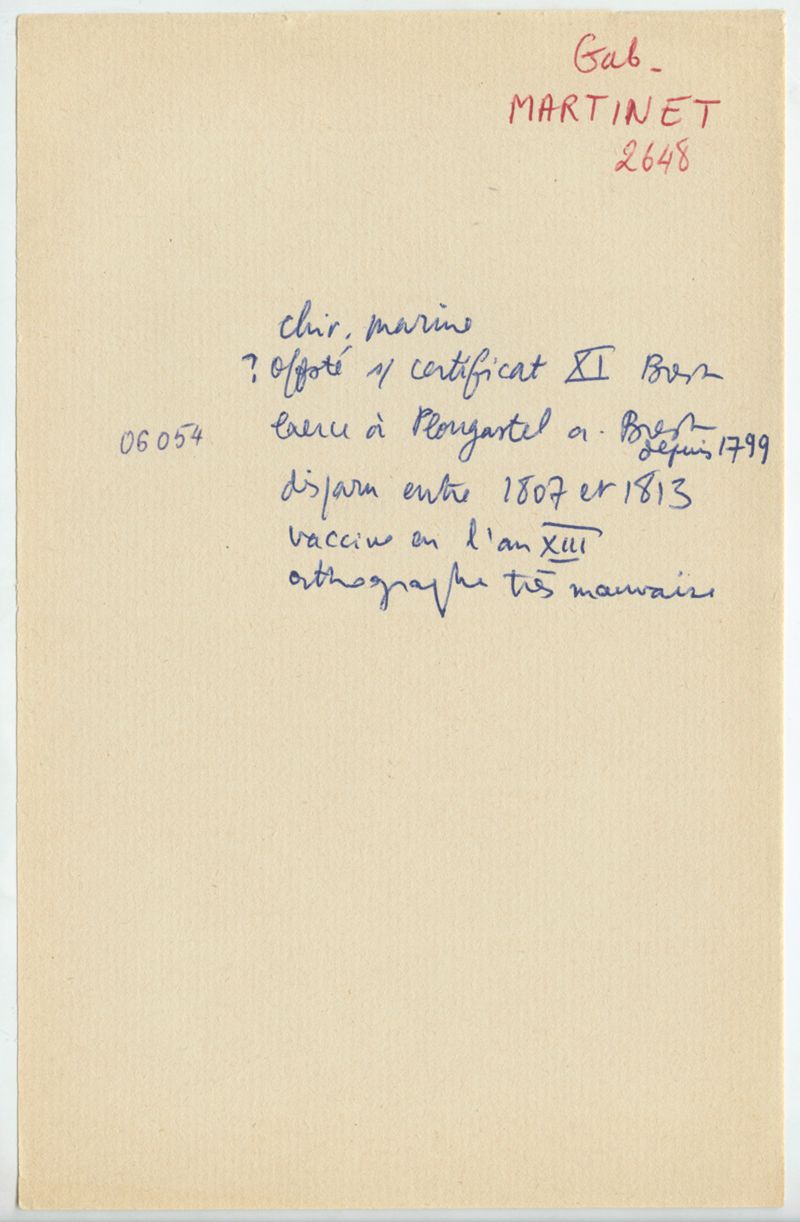 Gab-
MARTINET
2648
chir. marine
? offsté s/ certificat XI Brest
06054
exerce à Plougastel a. Brest
depuis 1799
disparu entre 1807 et 1813
vaccine en l'an XIII
orthographe très mauvaise